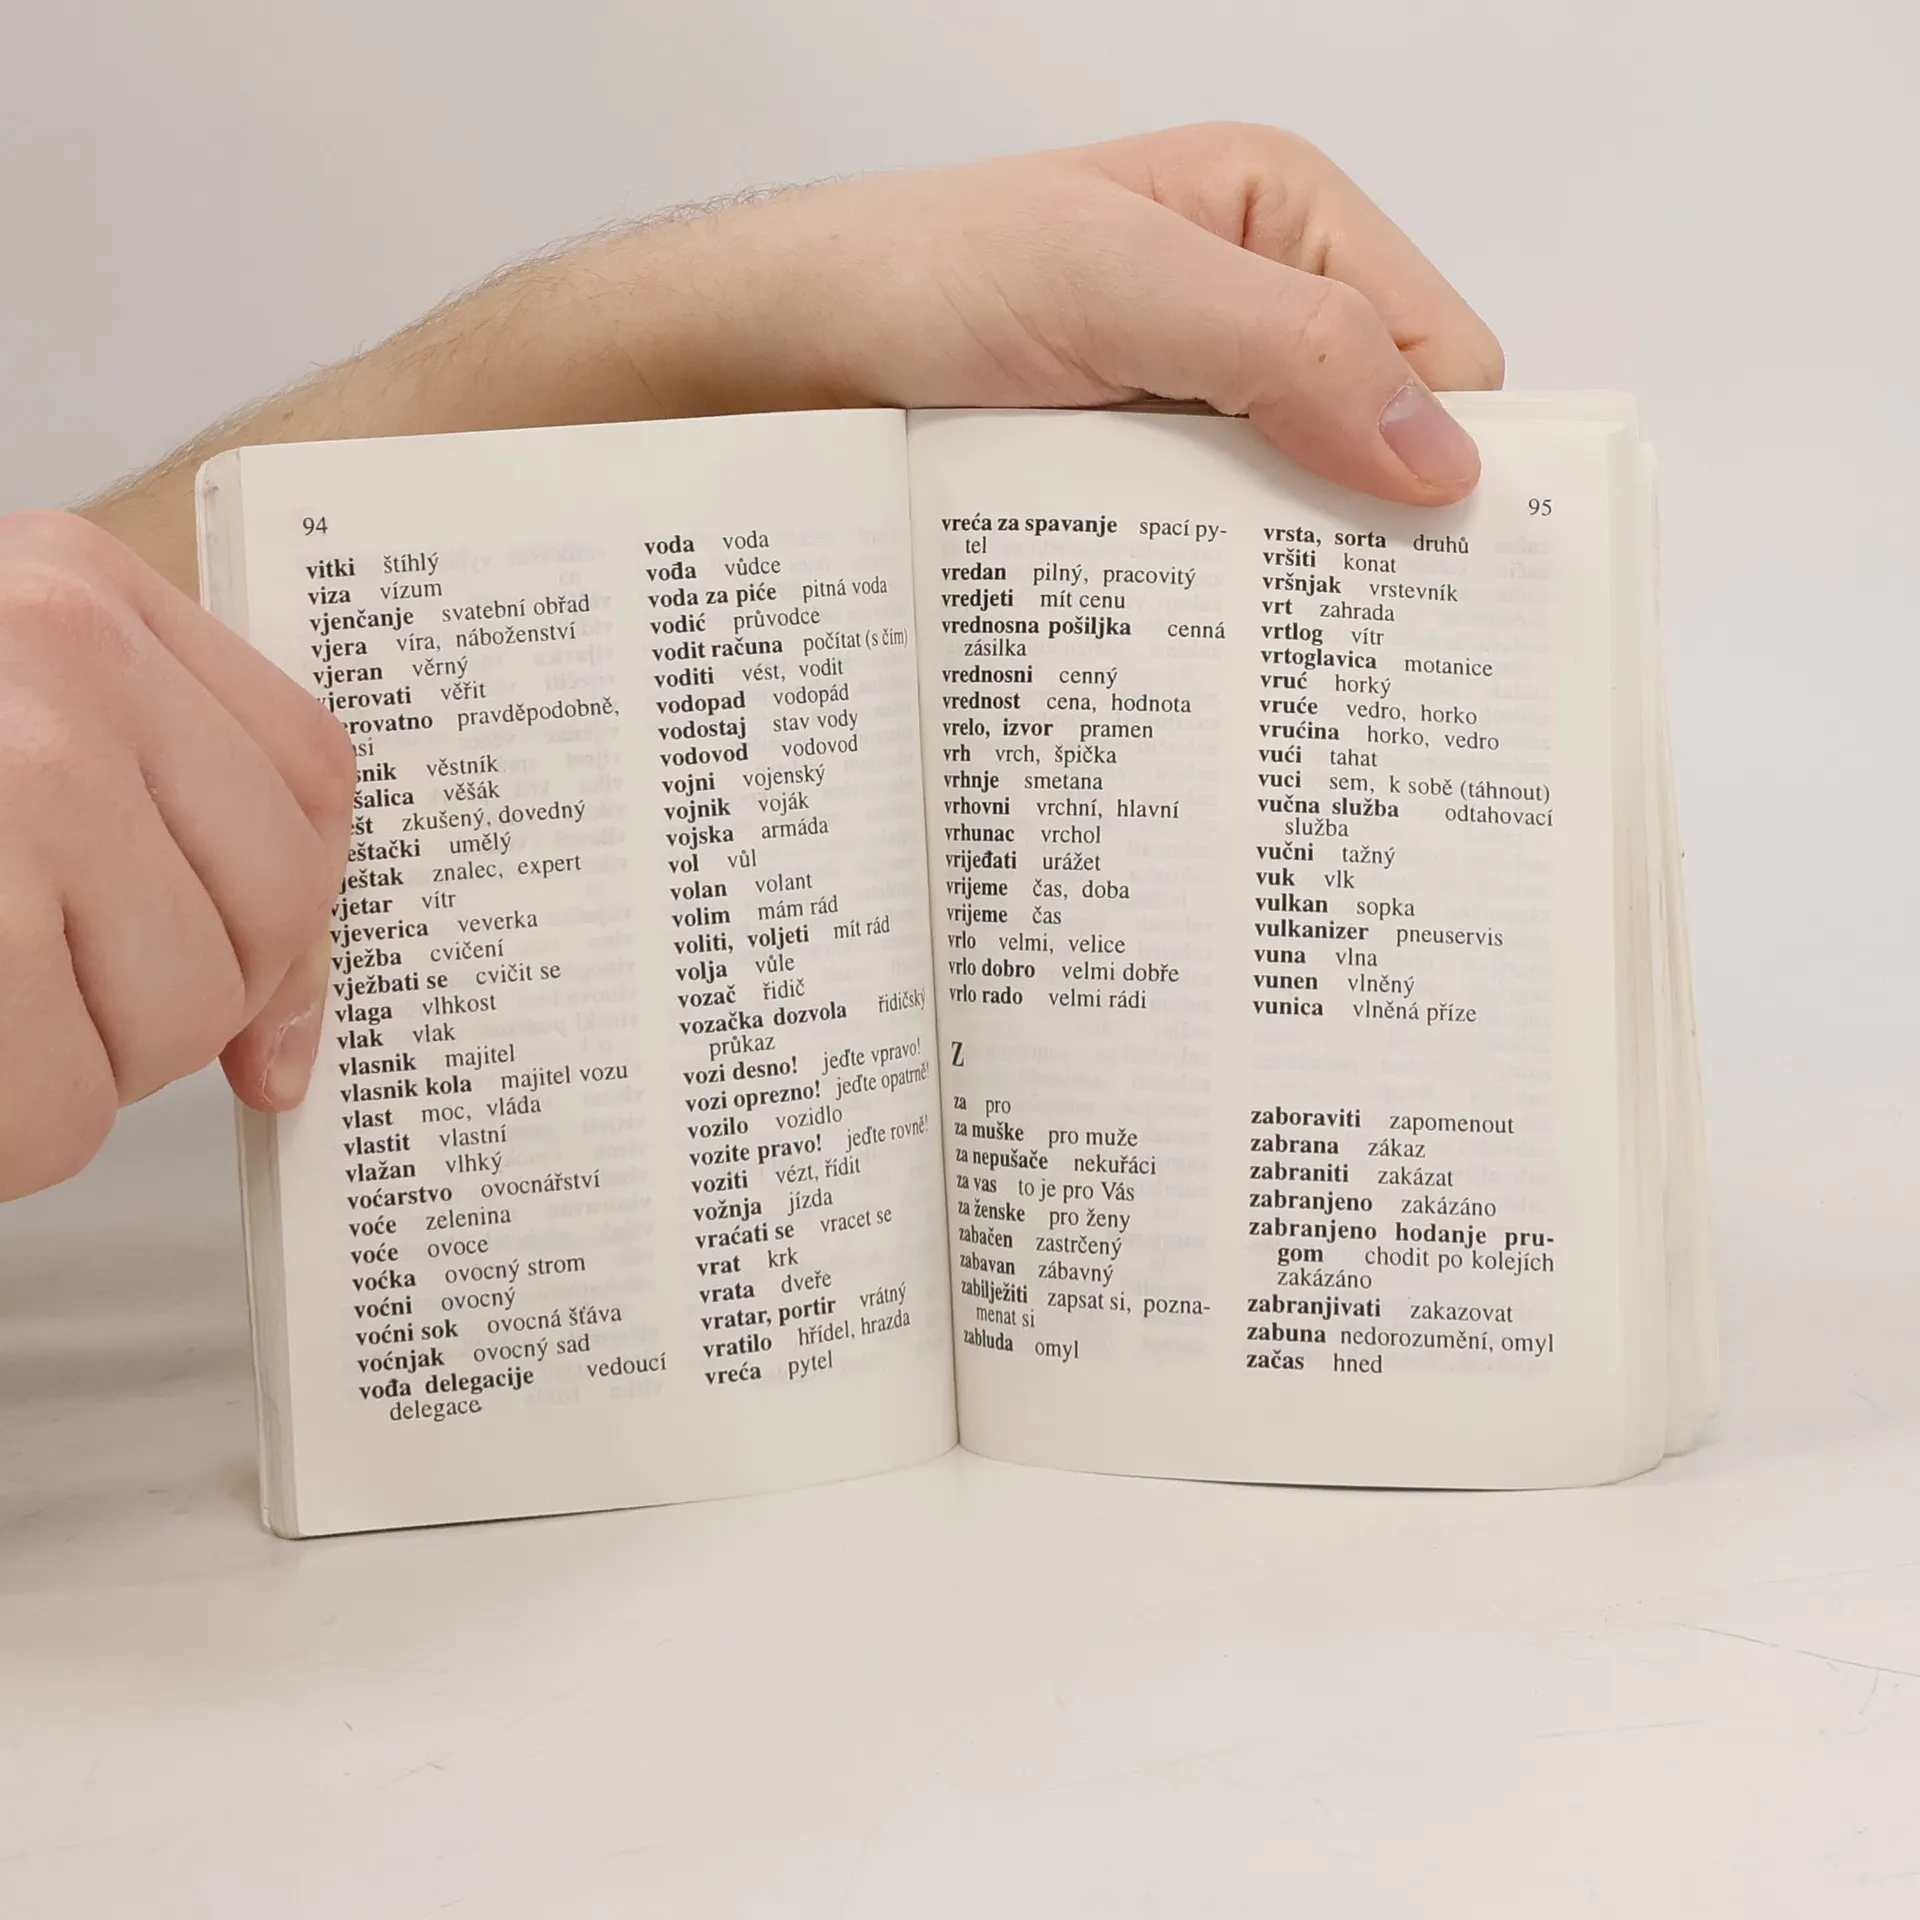 94
vitki štíhlý
viza vízum
vjenčanje svatební obřad
vjera víra, náboženství
vjeran věrný
vjerovati věřit
pravděpodobně,
věstník
věšák
zkušený, dovedný
umělý
znalec, expert
vjetar vítr
vjeverica veverka
vježba cvičení
vježbati se cvičit se
vlaga vlhkost
vlak vlak
vlasnik majitel
vlasnik kola majitel vozu
vlast moc, vláda
vlastit vlastní
vlažan vlhký
voćarstvo ovocnářství
voće zelenina
voće ovoce
voćka ovocný strom
voćni ovocný
voćni sok ovocná šťáva
voćnjak ovocný sad
vođa delegacije vedoucí
delegace
voda voda
vođa vůdce
voda za piće pitná voda
vodić průvodce
vodit računa počítat (s čím)
voditi vést, vodit
vodopad vodopád
vodostaj stav vody
vodovod vodovod
vojni vojenský
vojnik voják
vojska armáda
vol vůl
volan volant
volim mám rád
voliti, voljeti mít rád
volja vůle
vozač řidič
vozačka dozvola řidičský
průkaz
vozi desno! jeďte vpravo!
vozi oprezno! jeďte opatrně!
vozilo vozidlo
vozite pravo! jeďte rovně!
voziti vézt, řídit
vožnja jízda
vraćati se vracet se
vrat krk
vrata dveře
vratar, portir vrátný
vratilo hřídel, hrazda
vreća pytel
95
vreća za spavanje spací py-
tel
vredan pilný, pracovitý
vredjeti mít cenu
vrednosna pošiljka cenná
zásilka
vrednosni cenný
vrednost cena, hodnota
vrelo, izvor pramen
vrh vrch, špička
vrhnje smetana
vrhovni vrchní, hlavní
vrhunac vrchol
vrijeđati urážet
vrijeme čas, doba
vrijeme čas
vrlo velmi, velice
vrlo dobro velmi dobře
vrlo rado velmi rádi
vrsta, sorta druhů
vršiti konat
vršnjak vrstevník
vrt zahrada
vrtlog vítr
vrtoglavica motanice
vruć horký
vruće vedro, horko
vrućina horko, vedro
vući tahat
vuci sem, k sobě (táhnout)
vučna služba odtahovací
služba
vučni tažný
vuk vlk
vulkan sopka
vulkanizer pneuservis
vuna vlna
vunen vlněný
vunica vlněná příze
Z
za pro
za muške pro muže
za nepušače nekuřáci
za vas to je pro Vás
za ženske pro ženy
zabačen zastrčený
zabavan zábavný
zabilježiti zapsat si, pozna-
menat si
zabluda omyl
zaboraviti zapomenout
zabrana zákaz
zabraniti zakázat
zabranjeno zakázáno
zabranjeno hodanje pru-
gom chodit po kolejích
zakázáno
zabranjivati zakazovat
zabuna nedorozumění, omyl
začas hned